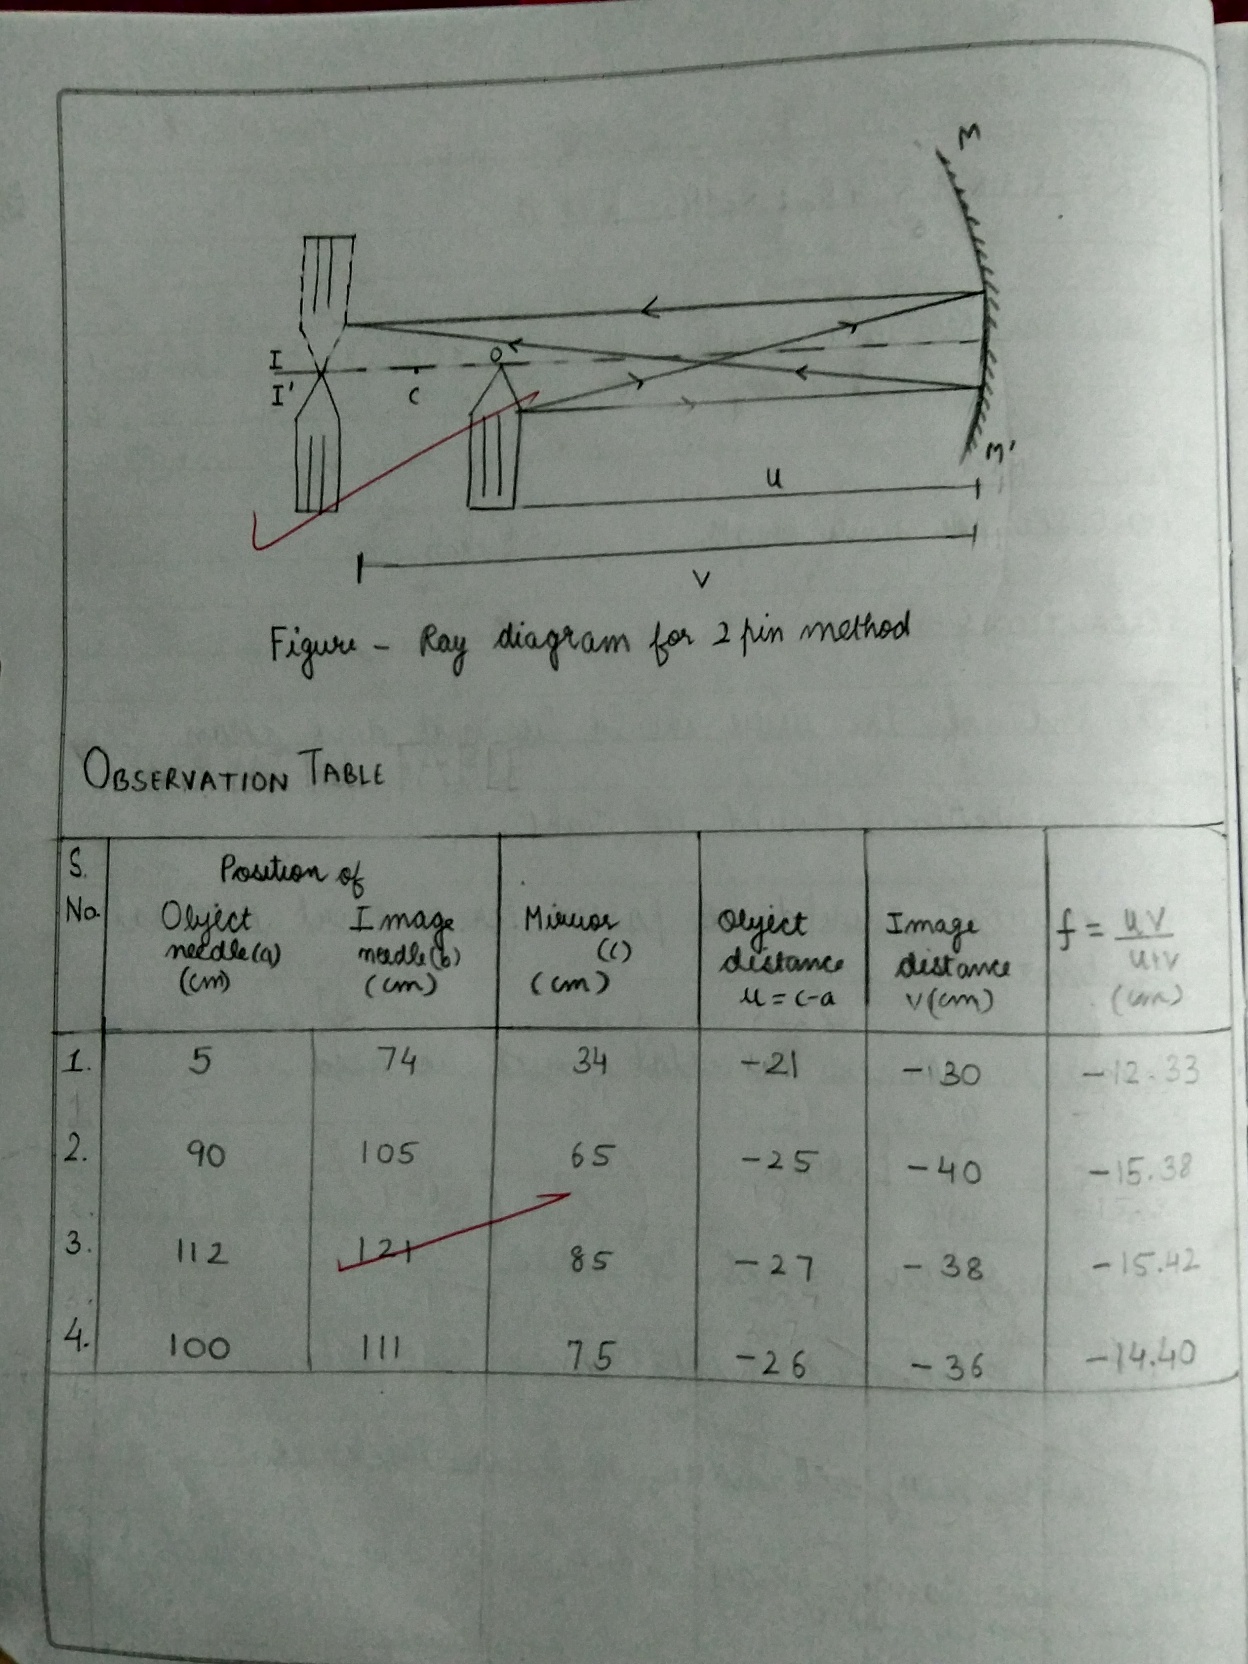 M
I
I'
C
O
M'
u
v
Figure - Ray diagram for 2 pin method
OBSERVATION TABLE
S. No.
Position of
Object needle(a) (cm)
Image needle(b) (cm)
Mirror (c) (cm)
Object distance u = c-a
Image distance v(cm)
f = uv/u+v (cm)
1. 5 74 34 -21 -30 -12.33
2. 90 105 65 -25 -40 -15.38
3. 112 121 85 -27 -38 -15.42
4. 100 111 75 -26 -36 -14.40